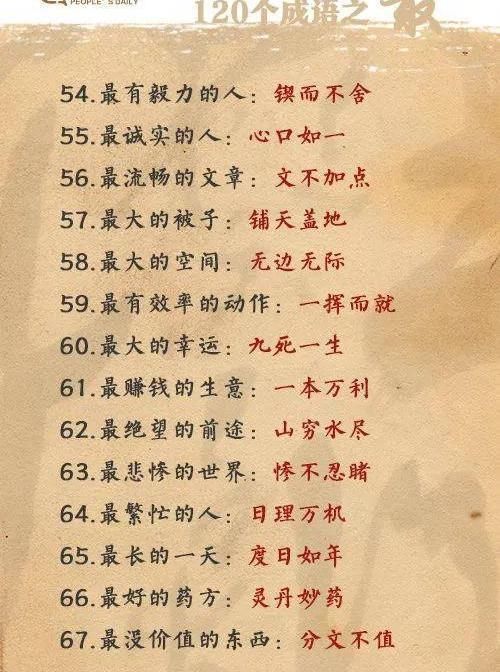 PEOPLE'S DAILY
120个成语之最
54.最有毅力的人：锲而不舍
55.最诚实的人：心口如一
56.最流畅的文章：文不加点
57.最大的被子：铺天盖地
58.最大的空间：无边无际
59.最有效率的动作：一挥而就
60.最大的幸运：九死一生
61.最赚钱的生意：一本万利
62.最绝望的前途：山穷水尽
63.最悲惨的世界：惨不忍睹
64.最繁忙的人：日理万机
65.最长的一天：度日如年
66.最好的药方：灵丹妙药
67.最没价值的东西：分文不值